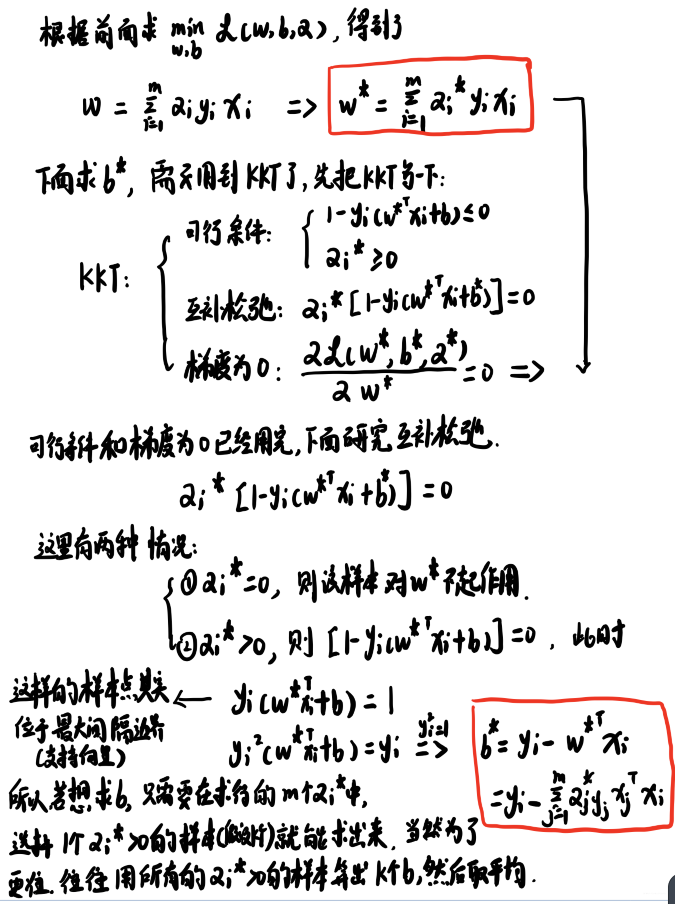 根据前面求 min w,b L(w,b,α),得到了
w = Σ_{i=1}^{m} αi yi xi => w* = Σ_{i=1}^{m} αi* yi xi
下面求b*,需要用到KKT了,先把KKT写一下:
KKT:
可行条件: { 1-yi(w*ᵀxi+b)≤0
αi*≥0
互补松弛: αi*[1-yi(w*ᵀxi+b*)]=0
梯度为0: ∂L(w*,b*,α*) / ∂w* = 0 =>
可行条件和梯度为0已经用完,下面研究互补松弛.
αi*[1-yi(w*ᵀxi+b*)]=0
这里有两种情况:
①αi*=0, 则该样本对w*不起作用.
②αi*>0, 则 [1-yi(w*ᵀxi+b)]=0. 此时
这样的样本点其实 ← yi(w*ᵀxi+b)=1
位于最大间隔边界 yi²(w*ᵀxi+b)=yi yi²=1 => b*=yi-w*ᵀxi
(支持向量)
=yi-Σ_{j=1}^{m} αj* yj xjᵀ xi
所以若想求b,只需要在求得的m个αi*中,
选择1个αi*>0的样本就能求出来.当然为了
更准.往往用所有的αi*>0的样本算出k个b,然后取平均.